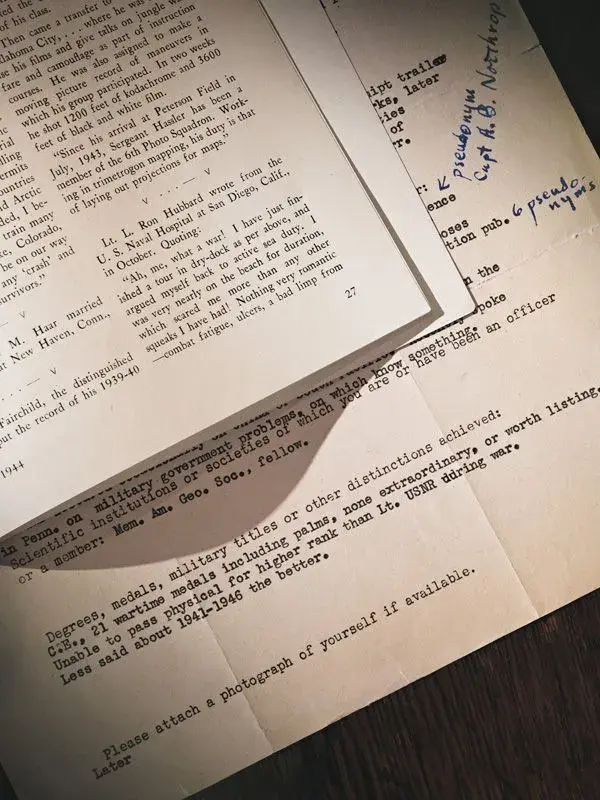 of his class.
Then came a transfer to
Oklahoma City, . . . where he was
use his films and give talks on jungle war-
fare and camouflage as part of instruction
courses. He was also assigned to make a
moving picture record of maneuvers in
which his group participated. In two weeks
he shot 1200 feet of kodachrome and 3600
feet of black and white film.
"Since his arrival at Peterson Field in
July, 1943, Sergeant Hasler has been a
member of the 6th Photo Squadron. Work-
ing in trimetrogon mapping, his duty is that
of laying out projections for maps."
V
Lt. L. Ron Hubbard wrote from the
U. S. Naval Hospital at San Diego, Calif.,
in October. Quoting:
"Ah, me, what a war! I have just fin-
ished a tour in dry-dock as per above, and
argued myself back to active sea duty. I
was very nearly on the beach for duration,
which scared me more than any other
squeaks I have had! Nothing very romantic
—combat fatigue, ulcers, a bad limp from
27
ermits
ountries
Arctic
I be-
train many
Colorado,
be on our way
any 'crash' and
survivors."
V
M. Haar married
at New Haven, Conn.,
V
Fairchild, the distinguished
put the record of his 1939-40
1944
ipt trailer
ks, later
ties
of
r.
pseudonym
Capt A. B. Northrop
r:
ence
oses
tion pub.
6 pseudo-
nyms
n the
spoke
on which know something.
in Penn. on military government problems,
Scientific institutions or societies of which you are or have been an officer
or a member: Mem. Am. Geo. Soc., fellow.
Degrees, medals, military titles or other distinctions achieved:
C.E., 21 wartime medals including palms, none extraordinary, or worth listing.
Unable to pass physical for higher rank than Lt. USNR ddring war.
Less said about 1941-1946 the better.
Please attach a photograph of yourself if available.
Later